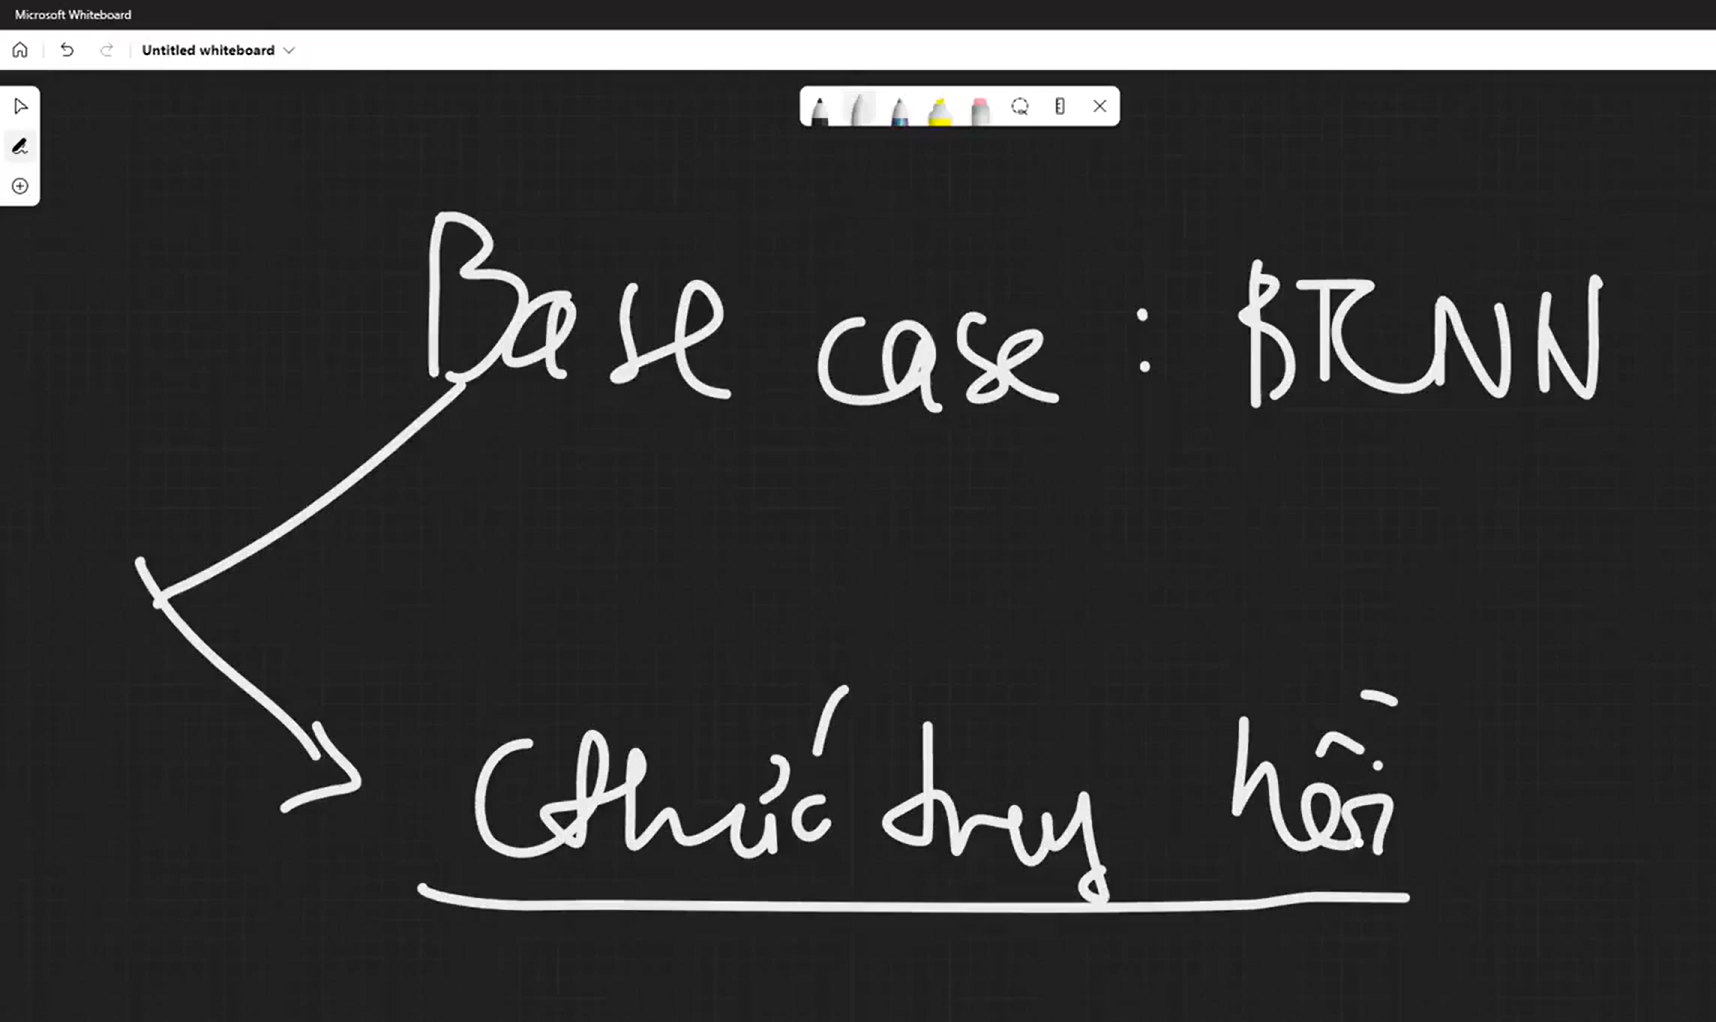 Microsoft Whiteboard
Untitled whiteboard
Base case : BTCNN
Cthức truy hồi